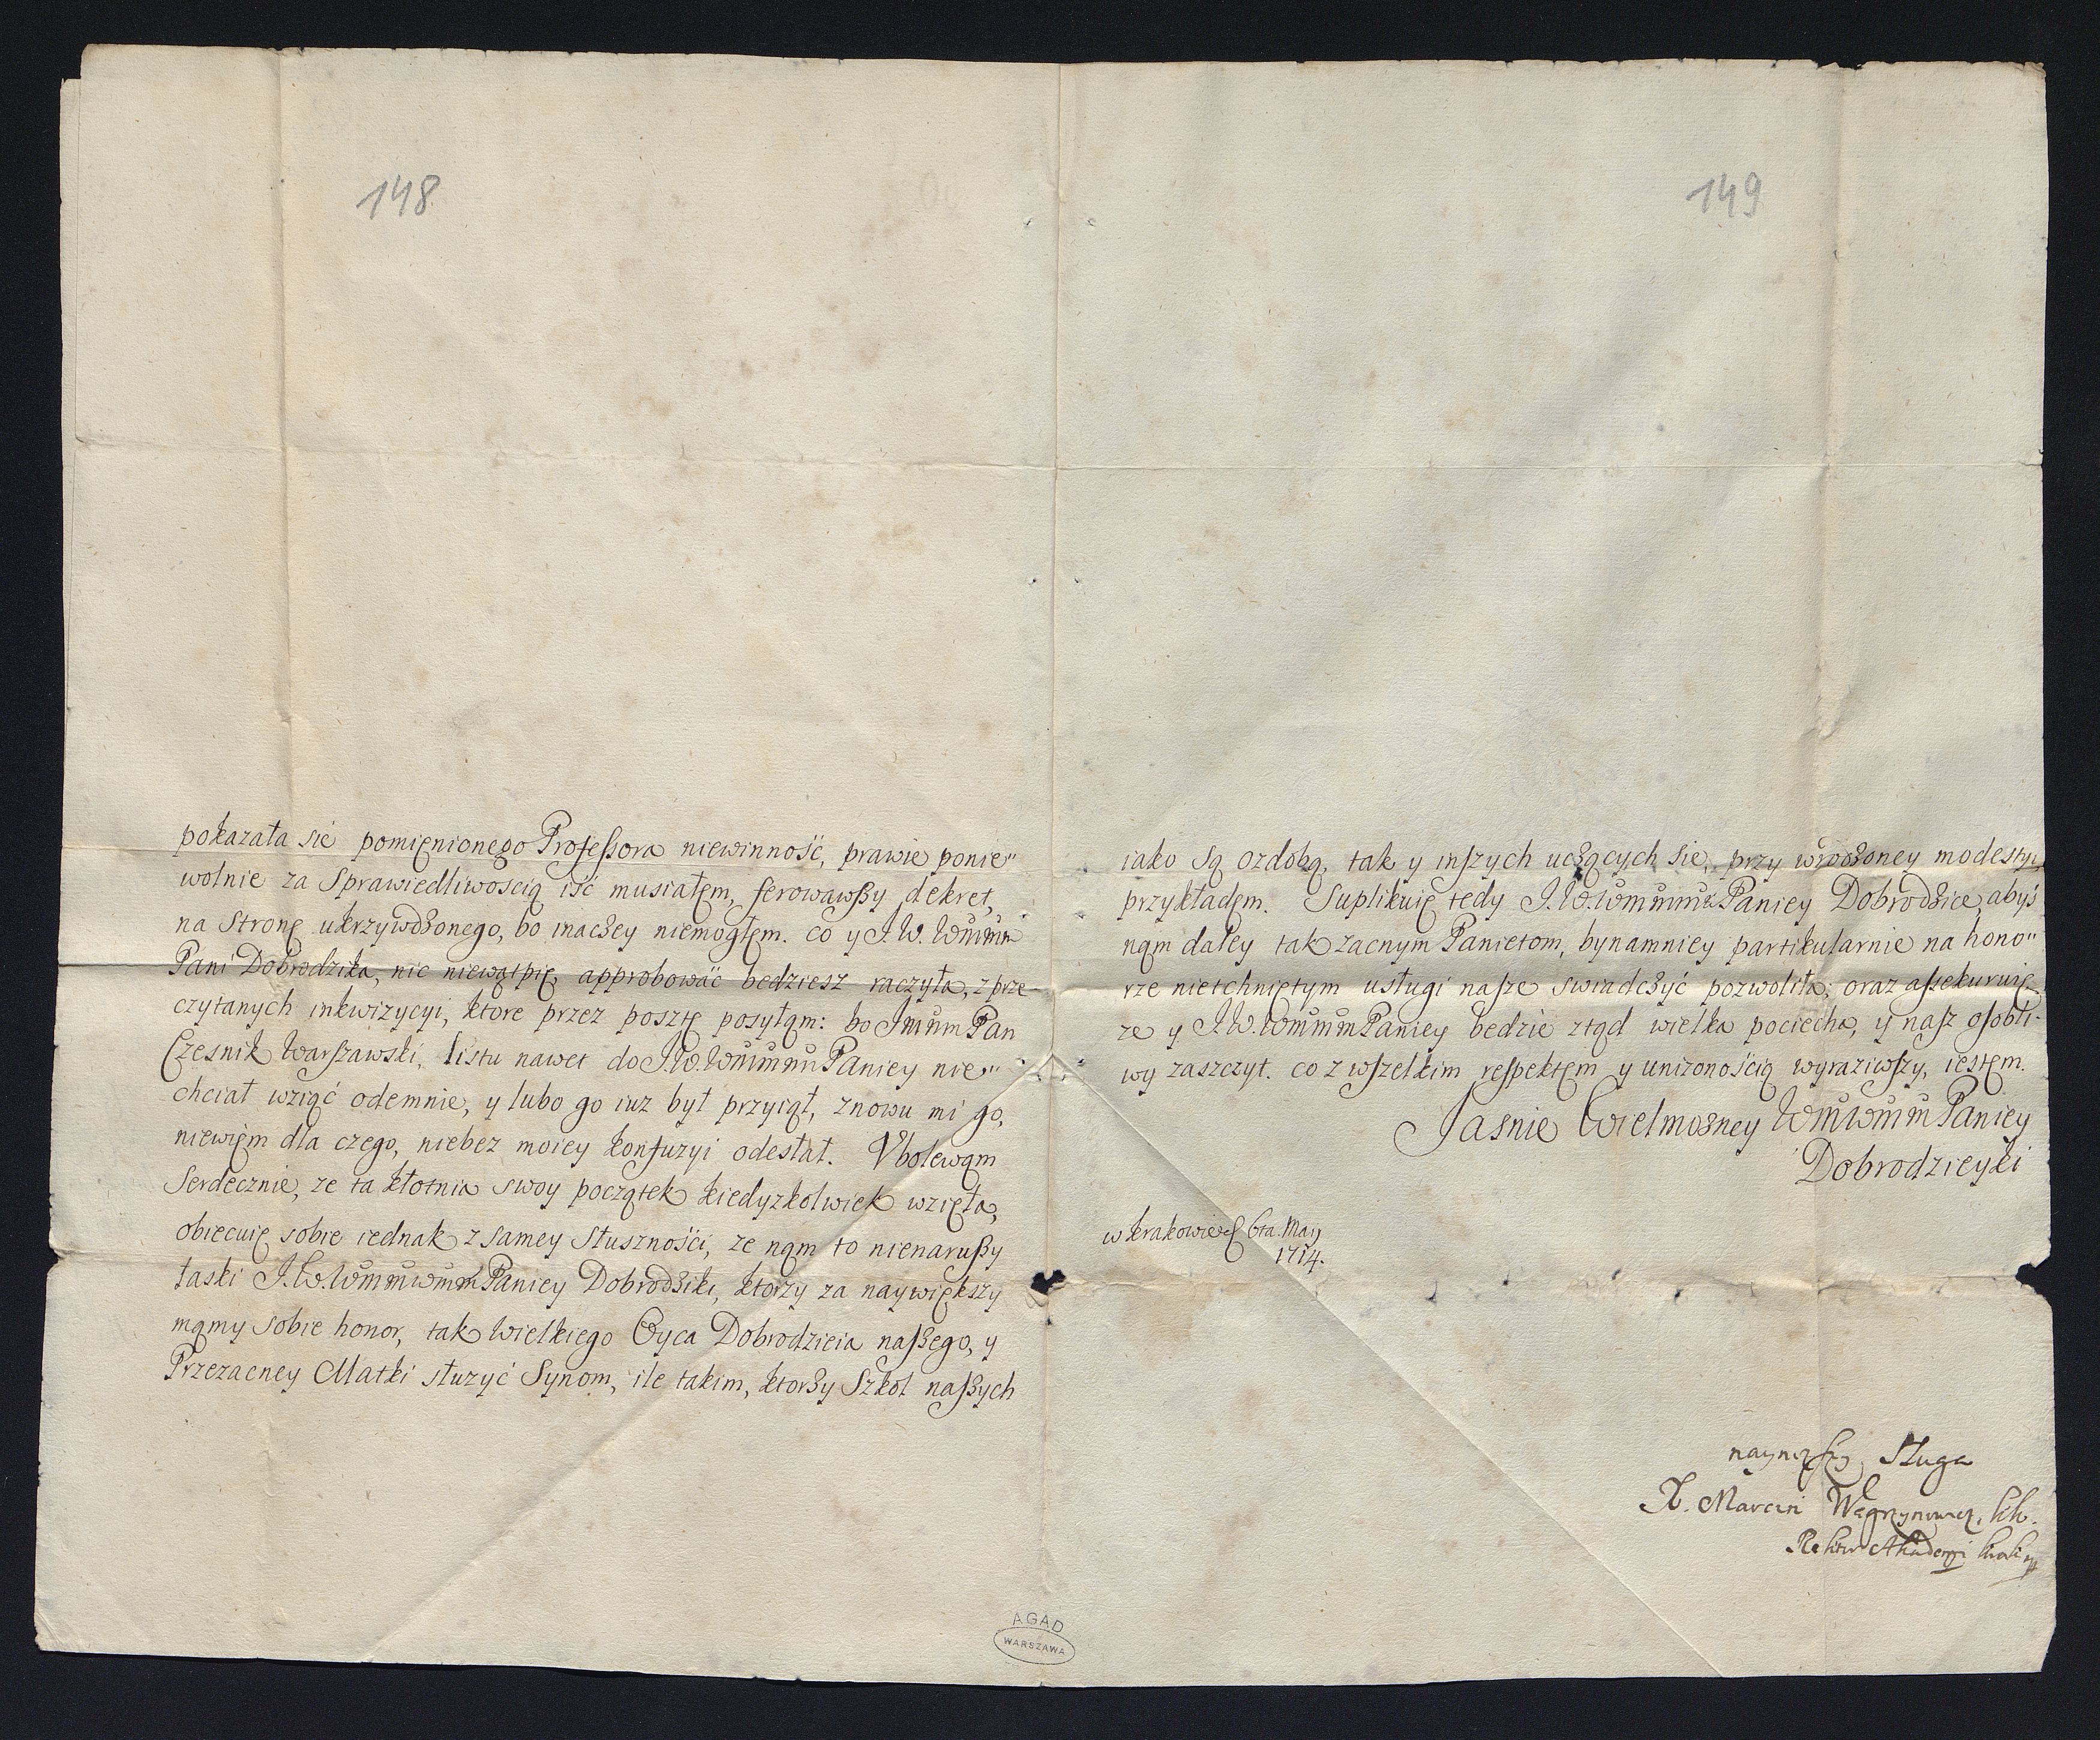 148
pokazała sie pomięnionego Professora niewinność, prawie ponie"
wolnie za Sprawiedliwoscią iść musiałęm, ferowawszy dekret,
na Stronę ukrzywdzonego, bo inaczey niemogłęm. co y J. W. Wmmm
Pani Dobrodzika, nic niewątpię, approbować będziesz raczyła, z prze-
czytanych inkwizycyi, ktore przez posztę posyłąm: bo Jmum Pan
Czesnik Warszawski, listu nawet do J.W. Wmmmm Paniey nie"
chciał wziąć odemnie, y lubo go iuz był przyiął, znowu mi go,
niewięm dla czego, niebez moiey konfuzyi odesłał. Vbolewąm
Serdecznie, ze ta kłotnia swoy początek kiedyzkolwiek wzięła,
obiecuię sobie iednak z samey słuszności, ze nąm to nienaruszy
łaski J.W. Wmmmwmm Paniey Dobrodziki, ktorzy za naywiększy
mąmy sobie honor, tak wielkiego Oyca Dobrodzieia naszego, y
Przezacney Matki słuzyć Synom, ile takim, ktorzy Szkoł naszych
149
iako są ozdobą, tak y inszych uczących sie, przy wrodzoney modestyi,
przykładęm. Suplikuię tedy J.W. Wmmmm Paniey Dobrodzice, abyś
nąm daley tak zacnym Panietom, bynamniey partikularnie na hono"
rze nietchniętym usługi nasze swiadczyć pozwoliła; oraz assekuruię
ze y J.W. Wmmmm Paniey bedzie ztąd wielka pociecha, y nasz osobli-
wy zaszczyt. co z wszelkim respektęm y unizonością wyraziwszy, iestęm.
Jasnie Wielmozney Wmwmm Paniey
Dobrodzieyki
w Krakowie 6ta. Maij
1714.
nayniższy Sługa
X. Marcin Węgrzynowicz,
Rektor Akademii
AGAD
WARSZAWA